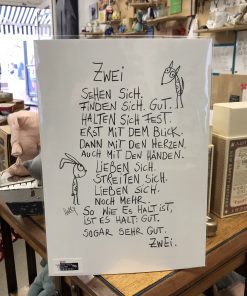 ZWEi
SEHEN SiCH.
FiNDEN SiCH. GUT.
HALTEN SiCH FEST.
ERST MiT DEM BLiCK.
DANN MiT DEN HERZEN.
AUCH MiT DEN HÄNDEN.
LiEBEN SiCH.
STREiTEN SiCH.
LiEBEN SiCH.
NOCH MEHR.
SO WiE ES HALT iST,
iST ES HALT: GUT.
SOGAR SEHR GUT.
ZWEi.